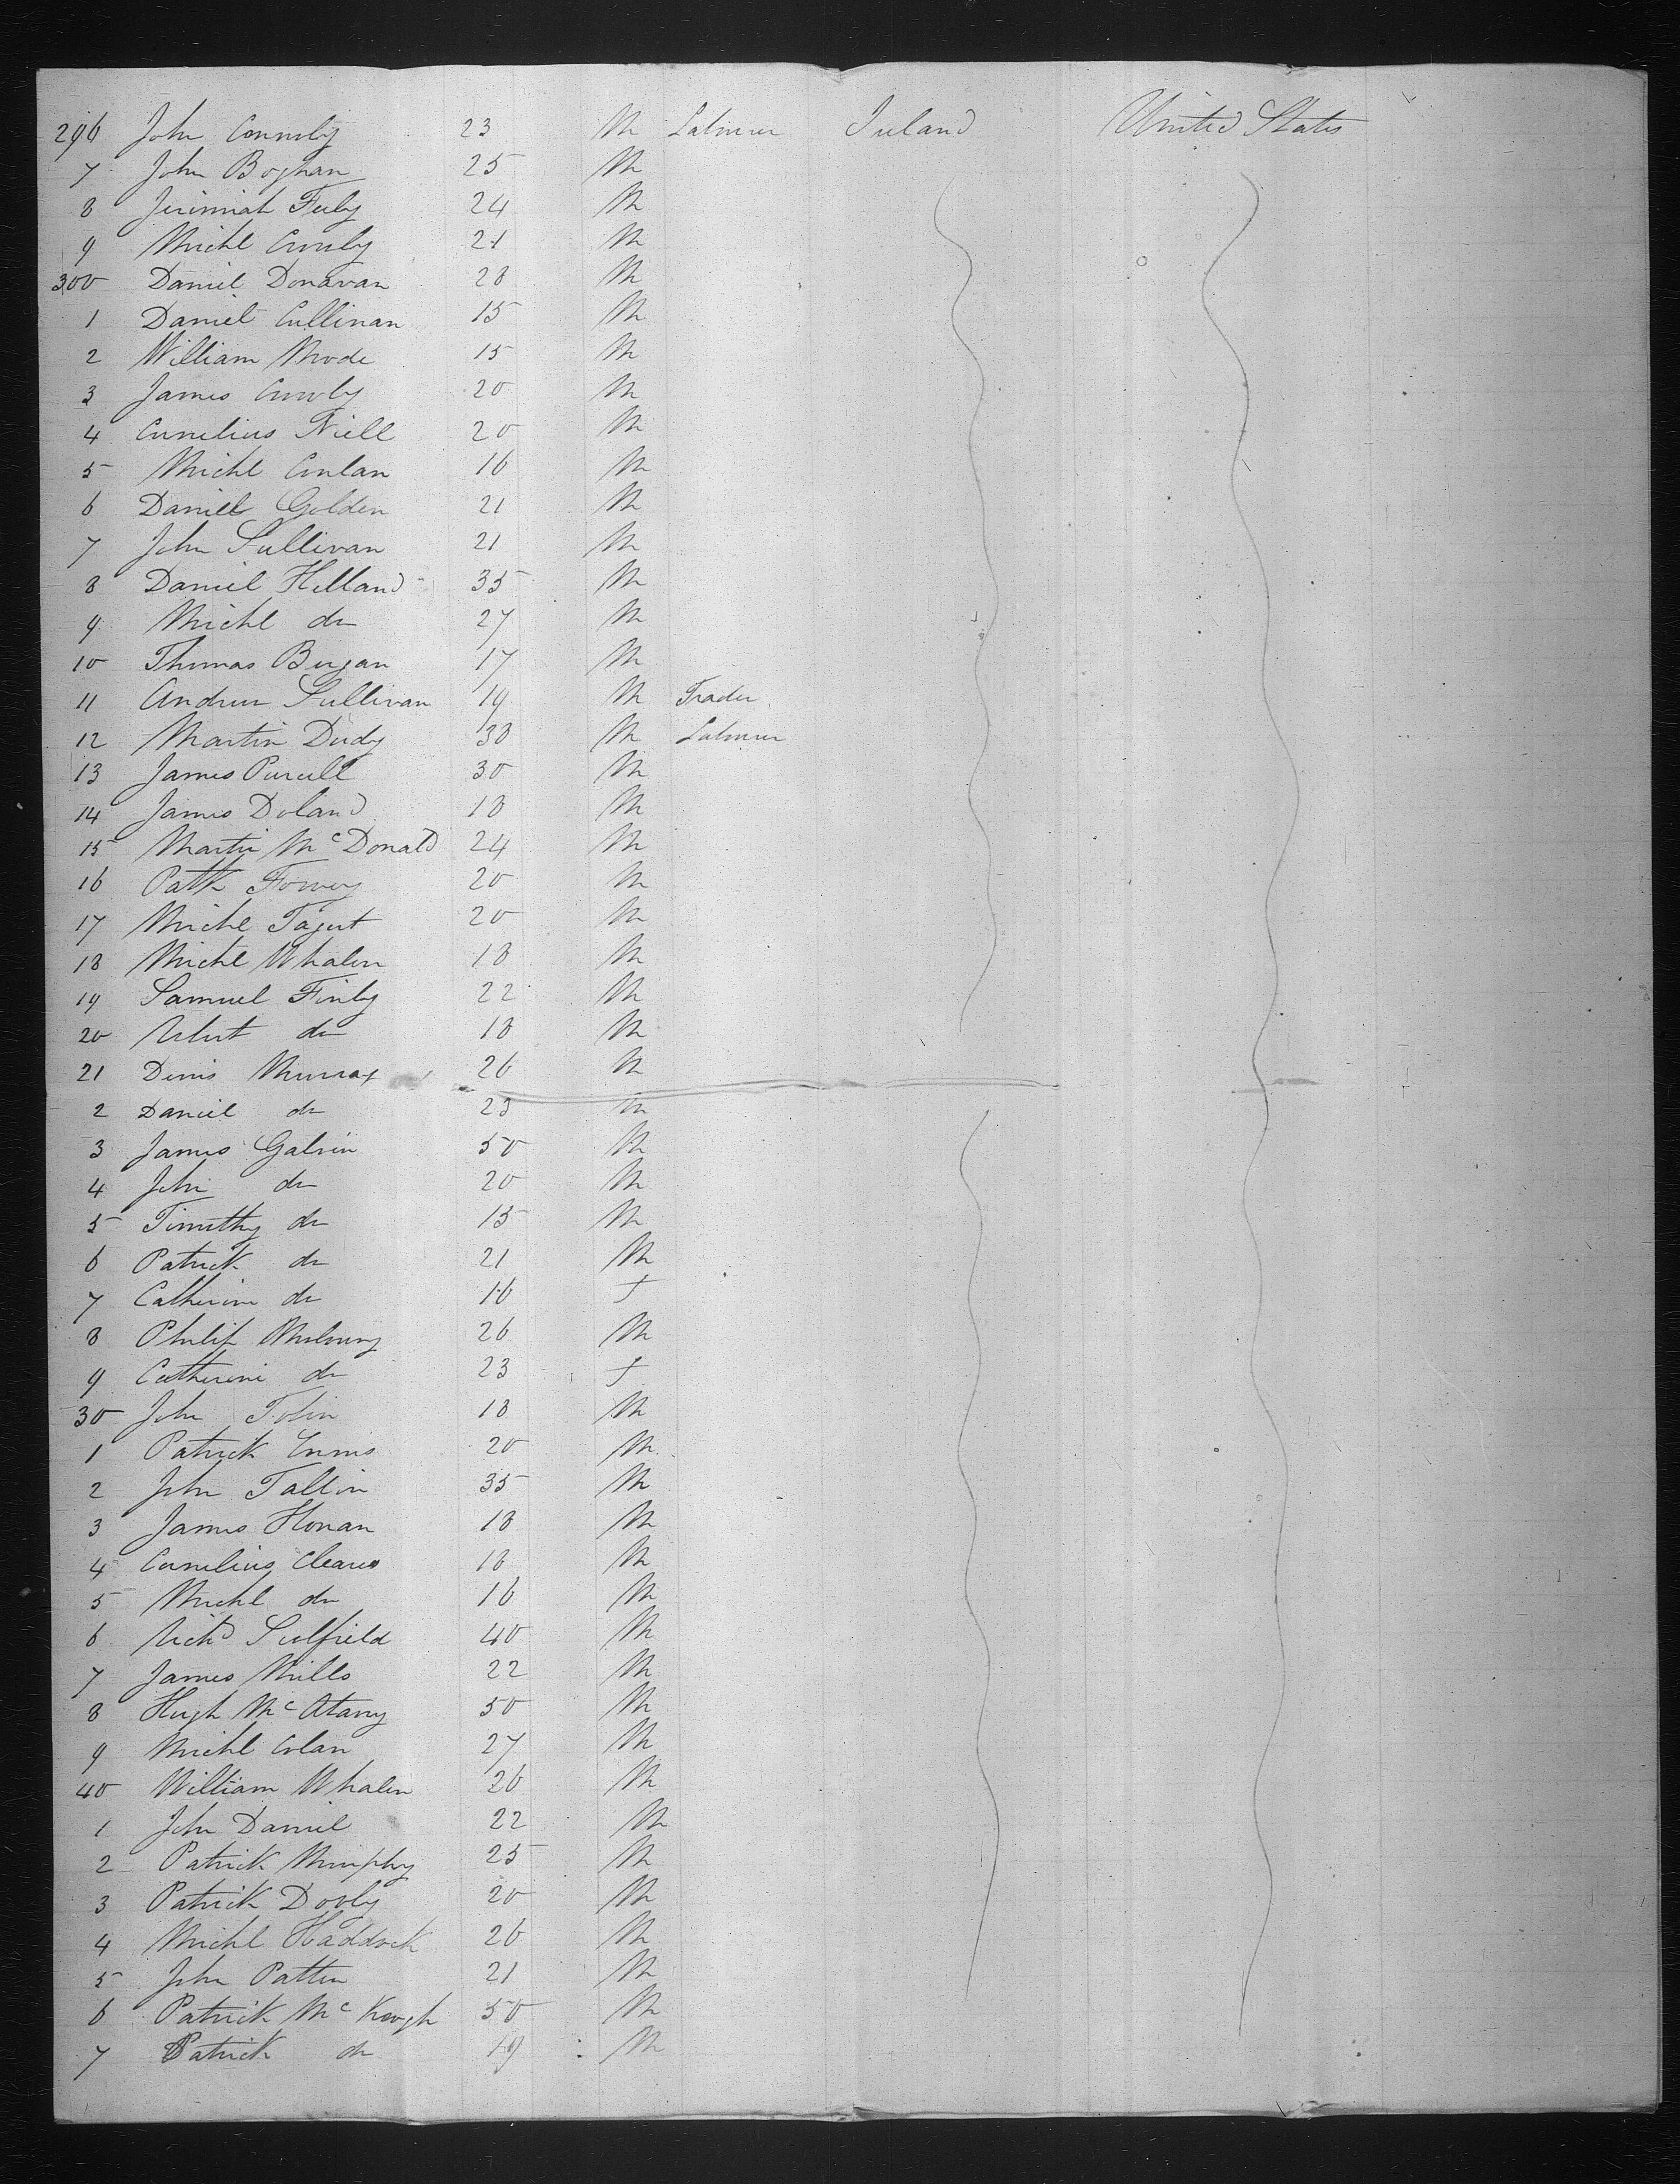 296 John Connoly 23 M Labourer Ireland United States
7 John Boghan 25 M
8 Jerimiah Feely 24 M
9 Michl Crowly 21 M
300 Daniel Donavan 28 M
1 Daniel Cullinan 15 M
2 William Meode 15 M
3 James Crowly 20 M
4 Cornelius Niell 20 M
5 Michl Conlan 16 M
6 Daniel Golden 21 M
7 John Sullivan 21 M
8 Daniel Holland 35 M
9 Michl do 27 M
10 Thomas Bergan 17 M
11 Andrew Sullivan 19 M Trader
12 Martin Dudy 38 M Labourer
13 James Purcell 30 M
14 James Doland 18 M
15 Martin McDonald 24 M
16 Patk 20 M
17 Michl Tagert 20 M
18 Michl Whalen 18 M
19 Samuel Finly 22 M
20 Robert do 18 M
21 Denis Murray 26 M
2 Daniel do 23 M
3 James Galvin 50 M
4 John do 20 M
5 Timothy do 15 M
6 Patrick do 21 M
7 Catherine do 16 F
8 Philip 26 M
9 Catherine do 23 F
30 John Tobin 18 M
1 Patrick Ennis 20 M
2 John Tallin 35 M
3 James Honan 18 M
4 Cornelius Cleares 18 M
5 Michl do 16 M
6 Richd 40 M
7 James Mills 22 M
8 Hugh McAtavy 50 M
9 Michl Colan 27 M
40 William Whalen 26 M
1 John Daniel 22 M
2 Patrick Murphy 25 M
3 Patrick Dooly 20 M
4 Michl Haddock 26 M
5 John Patten 21 M
6 Patrick McKeogh 50 M
7 Patrick do 19 M